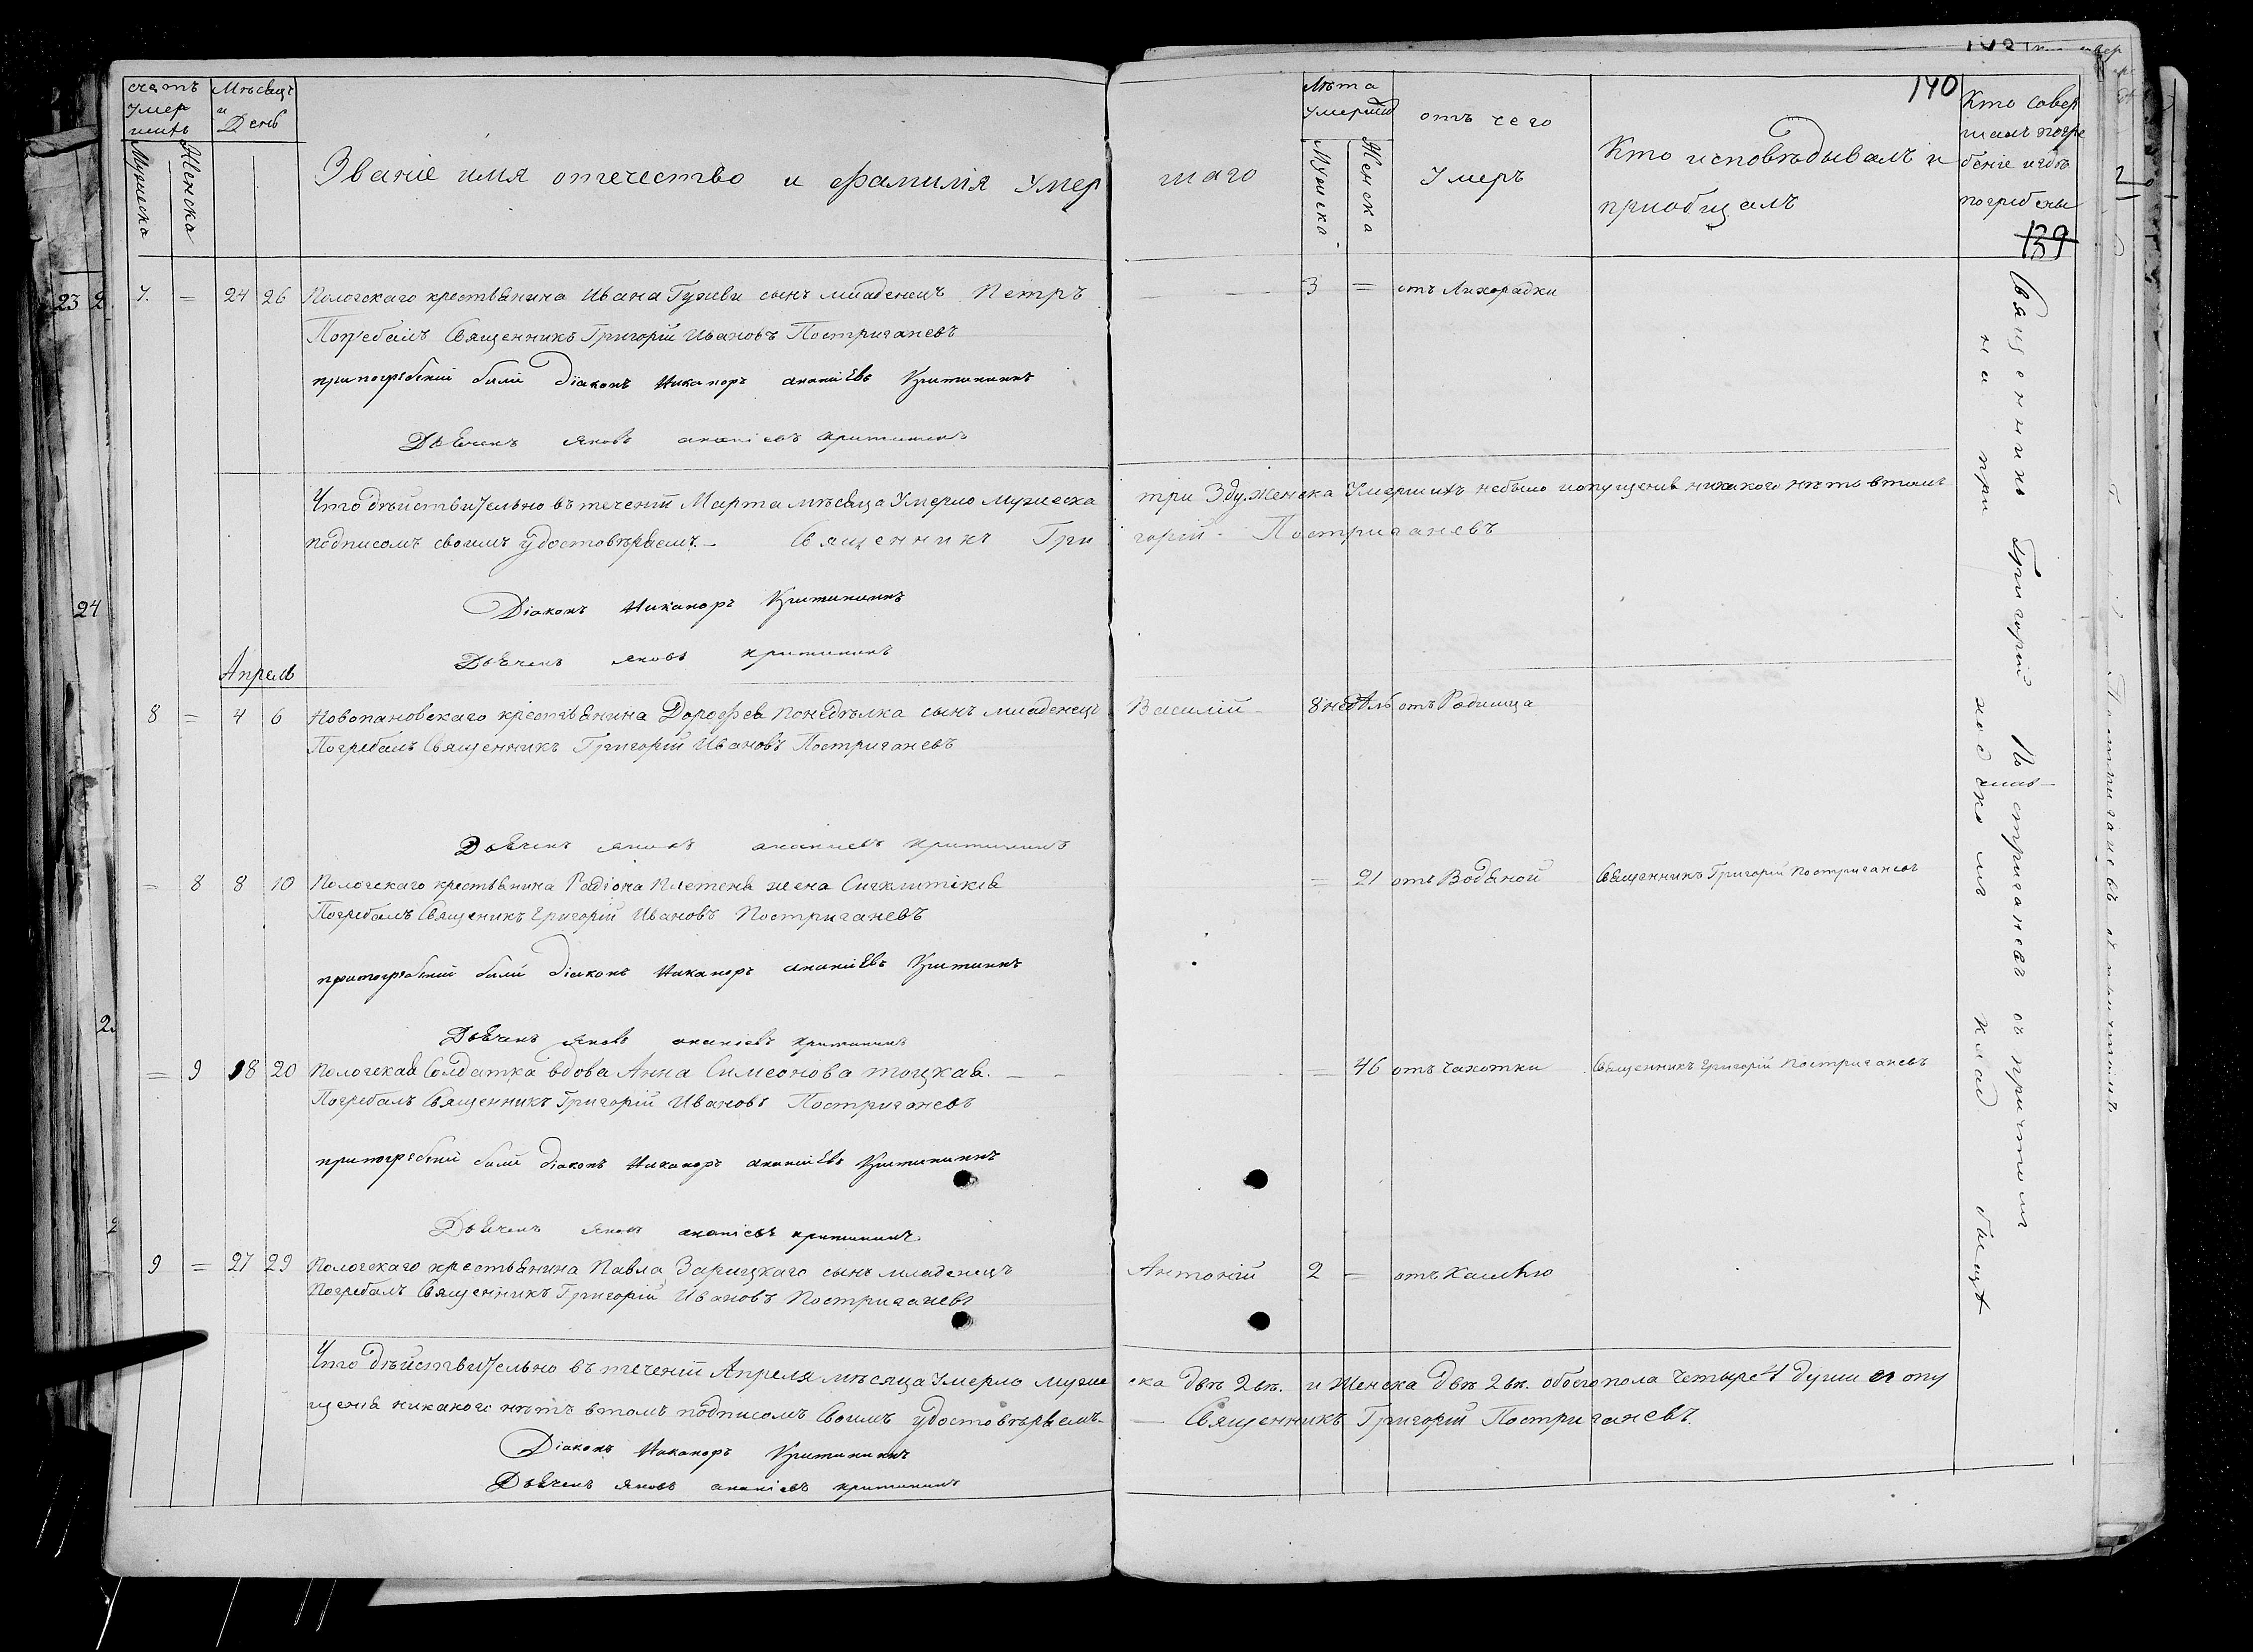 счетъ умер шихъ
Мужеска
Женска
Мѣсяцъ и День
Званіе имя отечество и фамилія Умер шаго
Лѣта Умершаго
Мужска
Женска
отъ чего Умеръ
140
Кто исповѣдывалъ и пріобщалъ
Кто совер шалъ погре беніе и гдѣ погребены
139
7. = 24 26 Пологскаго крестьянина Ивана сынъ младенецъ Петръ 3 = отъ Лихорадки
Погребалъ Священникъ Григорій Ивановъ Постриганевъ
при погребеніи были Діаконъ Никаноръ ананіевъ Критининъ
Дьячекъ яковъ ананіевъ критининъ
Что дѣйствительно въ теченіи Марта мѣсяца Умерло мужеска три 3 ду. женска Умершихъ небыло и опущенія никакого нѣтъ втомъ
подписомъ своимъ удостовѣряемъ. — Священникъ Григорій Постриганевъ
Діаконъ Никаноръ Критининъ
Дьячекъ яковъ критининъ
Апрель
8 = 4 6 Новопановскаго крестьянина Дорофея Понедѣлка сынъ младенецъ Василій 8 недѣль отъ Родимца
Погребалъ Священникъ Григорій Ивановъ Постриганевъ
Дьячекъ яковъ ананиевъ критининъ
= 8 8 10 Пологскаго крестьянина Радіона Плетеня жена Сигклитікія = 21 отъ Водяной Священникъ Григорій Постриганевъ
Погребалъ Священикъ Григорій Ивановъ Постриганевъ
при погребеніи были діаконъ Никаноръ ананіевъ Критининъ
Дьячекъ яковъ ананіевъ критининъ
= 9 18 20 Пологская Солдатка вдова Анна Симеонова тоцкая. = 46 отъ чахотки Священникъ Григорій Постриганевъ
Погребалъ Священникъ Григорій Ивановъ Постриганевъ
при погребеніи были діаконъ Никаноръ ананіевъ Критининъ
Дьячекъ яковъ ананіевъ критининъ
9 = 27 29 Пологскаго крестьянина Павла Зарицкаго сынъ младенецъ Антоній 2 — отъ Кашлю
Погребалъ Священникъ Григорій Ивановъ Постриганевъ
Что дѣйствительно въ теченіи Апреля мѣсяца Умерло мужеска двѣ 2 и Женска двѣ 2 обоего пола Четыре 4 души и опу
щенія никакого нѣтъ втомъ подписомъ Своимъ удостовѣряемъ — Священникъ Григорій Постриганевъ.
Діаконъ Никаноръ Критининъ
Дьячекъ яковъ ананіевъ критининъ
Священникъ Григорій Постриганевъ съ причтомъ
на приходскомъ кладбищѣ